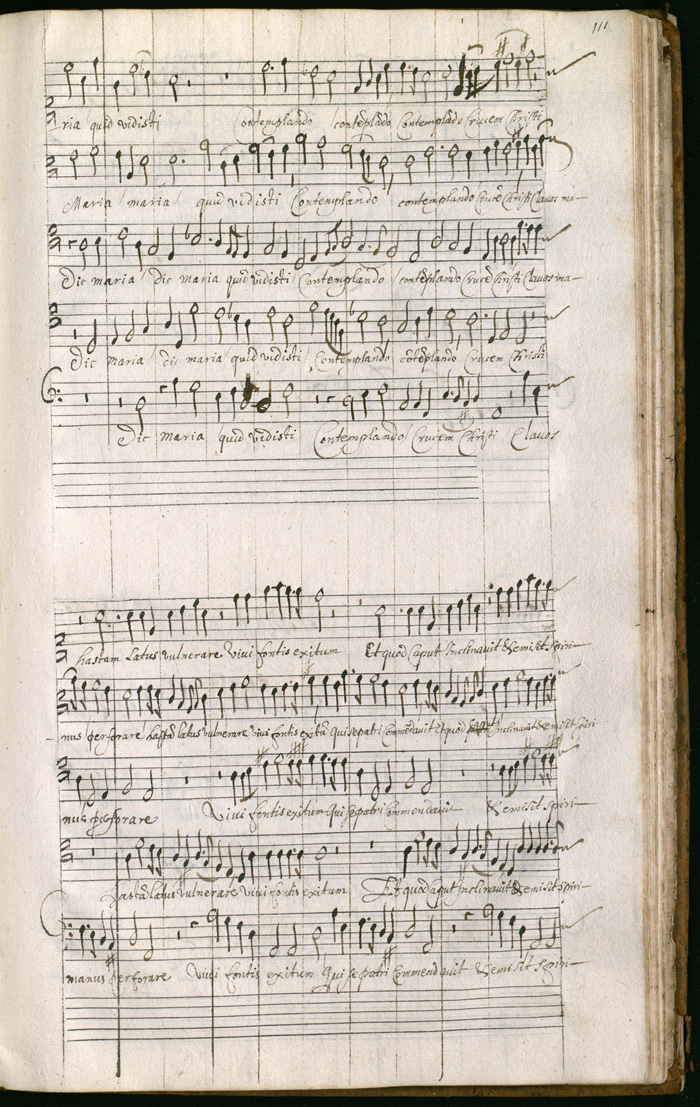 111
ria quid vidisti Contemplando contẽplãdo Contemplãdo Crucem Christi
Maria maria quid vidisti Contemplando contemplando Crucẽ Christi Clavos ma-
Dic maria dic maria quid vidisti Contemplando contẽplando Crucẽ Christi Clavos ma-
Dic Maria dic maria quid vidisti Contemplando cõtẽplando Crucem Christi
Dic Maria quid vidisti Contemplando Crucem Christi Clavos
hastam Latus vulnerare Vivi fontis exitum Et quod Caput Inclinavit & emisit spiri-
nus perforare hastã latus vulnerare vivi fontis exitũ Qui se patri Commẽdavit et quod Inclinavit & emisit spiri-
nus perforare Vivi fontis exitum Qui se patri Commendavit & emisit spiri-
hastã latus vulnerare vivi fontis exitum Et quod caput Inclinavit & emisit spiri-
manus perforare Vivi fontis exitum Qui se patri Commendavit & emisit spiri-